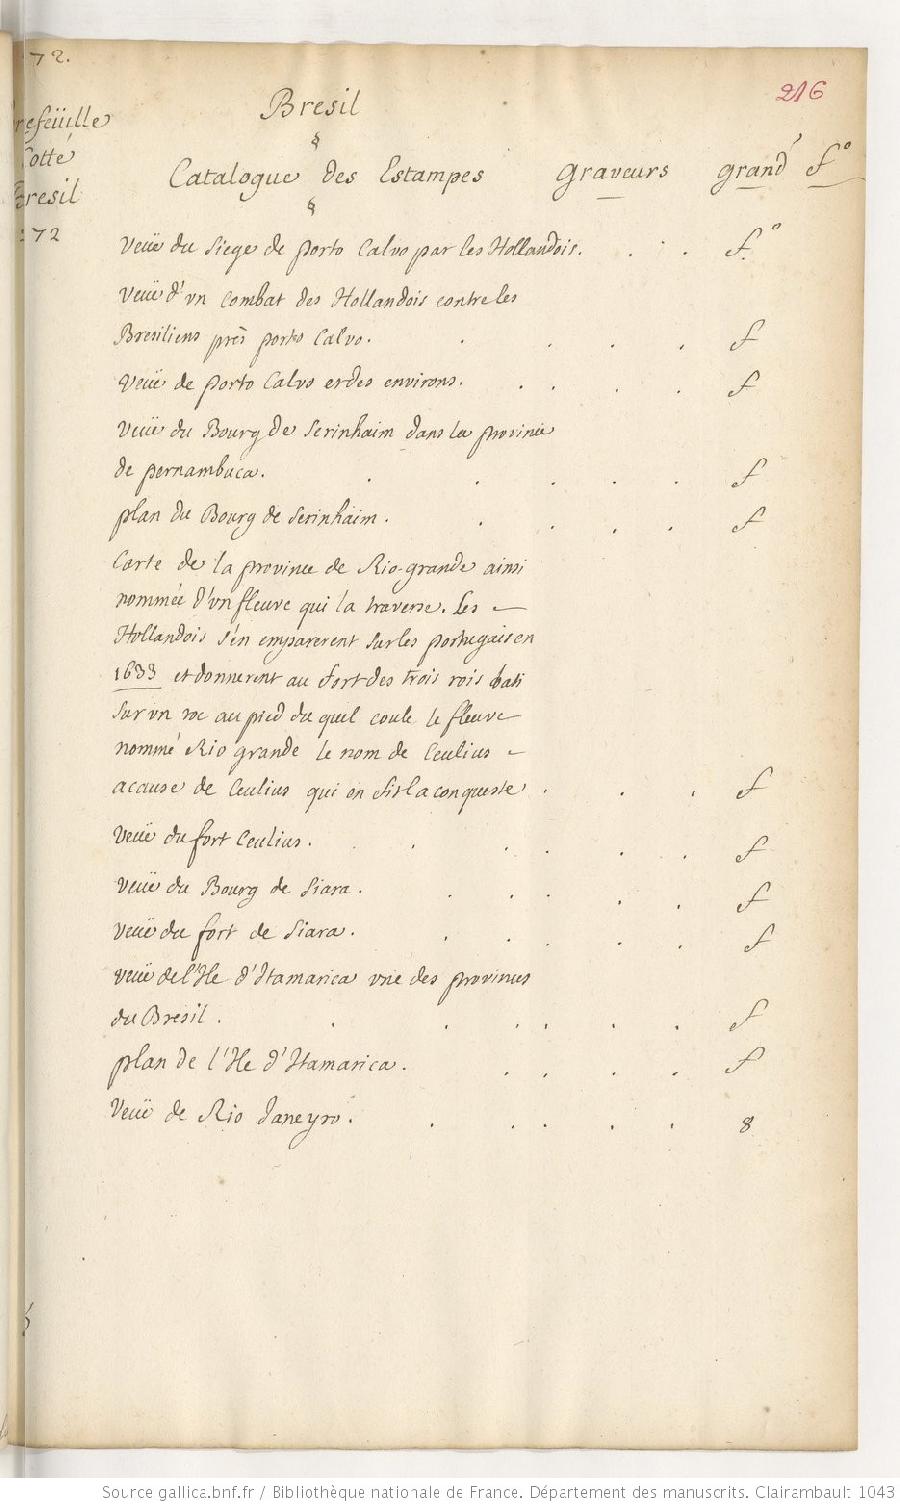 72.
216
refeüille
Cotté
Bresil
272
Bresil
Catalogue des Estampes graveurs grand fo
Veuë du siege de porto Calvo par les Hollandois. fo
Veuë d'vn Combat des Hollandois contre les
Bresiliens près porto Calvo. f
Veuë de porto Calvo et des environs. f
Veuë du Bourg de Serinhaim dans la province
de pernambuca. f
plan du Bourg de Serinhäim. f
Carte de la province de Rio-grande ainsi
nommée d'vn fleuve qui la traverse. Les
Hollandois s'en emparerent sur les portugais en
1633 et donnerent au fort des trois rois bati
sur vn roc au pied du quel coule le fleuve
nommé Rio grande le nom de Ceulius
acause de Ceulius qui en fit la conqueste. f
Veuë du fort Ceulius. f
Veuë du Bourg de Siara. f
Veuë du fort de Siara. f
Veuë de l'Ile d'Itamarica vne des provinces
du Bresil. f
plan de l'Ile d'Itamarica. f
Veuë de Rio Janeyro. 8
Source gallica.bnf.fr / Bibliothèque nationale de France. Département des manuscrits. Clairambault 1043